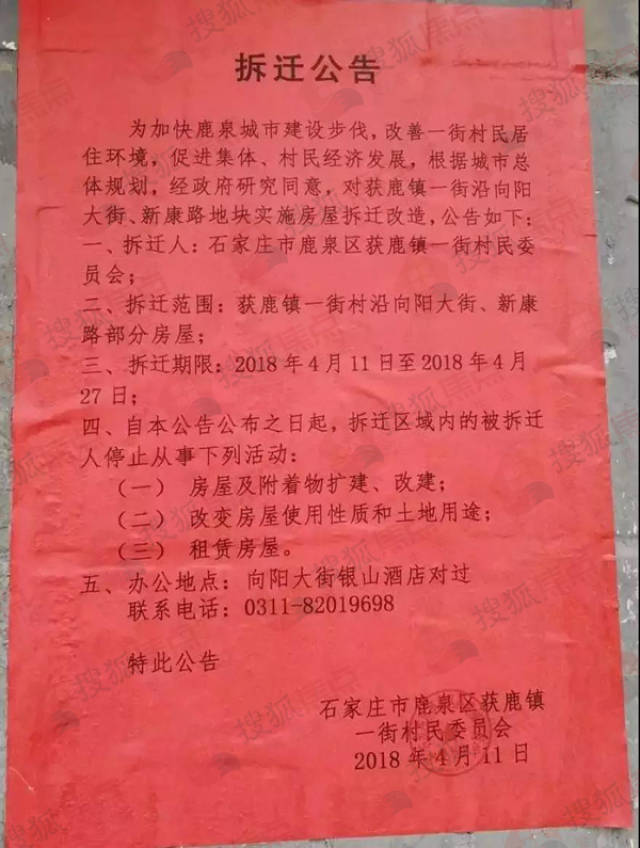 拆迁公告
为加快鹿泉城市建设步伐，改善一街村民居
住环境，促进集体、村民经济发展，根据城市总
体规划，经政府研究同意，对获鹿镇一街沿向阳
大街、新康路地块实施房屋拆迁改造，公告如下：
一、拆迁人：石家庄市鹿泉区获鹿镇一街村民委
员会；
二、拆迁范围：获鹿镇一街村沿向阳大街、新康
路部分房屋；
三、拆迁期限：2018年4月11日至2018年4月
27日；
四、自本公告公布之日起，拆迁区域内的被拆迁
人停止从事下列活动：
（一） 房屋及附着物扩建、改建；
（二） 改变房屋使用性质和土地用途；
（三） 租赁房屋。
五、办公地点：向阳大街银山酒店对过
联系电话：0311-82019698
特此公告
石家庄市鹿泉区获鹿镇
一街村民委员会
2018年4月11日
搜狐焦点